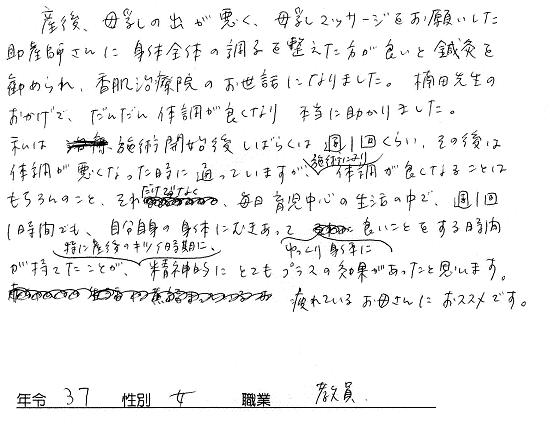 産後、母乳の出が悪く、母乳マッサージをお願いした
助産師さんに身体全体の調子を整えた方が良いと鍼灸を
勧められ、香肌治療院のお世話になりました。楠田先生の
おかげで、だんだん体調が良くなり 本当に助かりました。
私は 施術開始後しばらくは週1回くらい、その後は
体調が悪くなった時に通っていますが、施術により体調が良くなることは
もちろんのこと、それだけでなく、毎日育児中心の生活の中で、週1回
1時間でも、自分自身の身体にむきあって 良いことをする時間
特に産後のキツイ時期に、ゆっくり身体に
が持てたことが、精神的にとてもプラスの効果があったと思います。
疲れているお母さんにおススメです。
年令 37 性別 女 職業 教員.